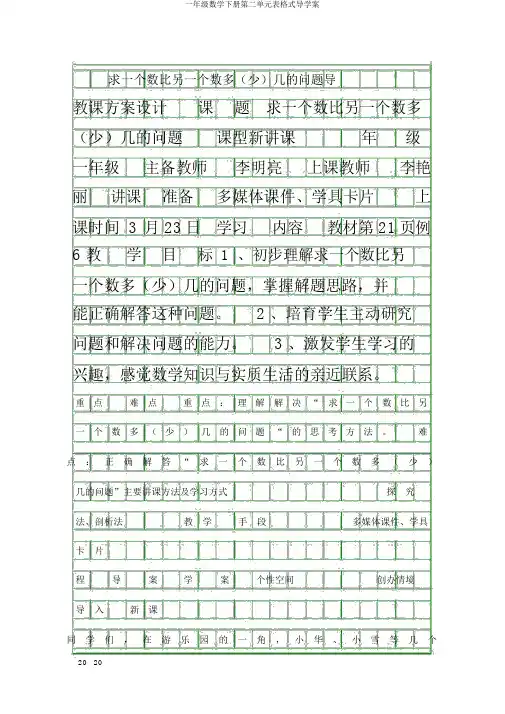 一年级数学下册第二单元表格式导学案
求一个数比另一个数多（少）几的问题导
教课方案设计 课 题 求一个数比另一个数多
（少）几的问题 课型新讲课 年 级
一年级 主备教师 李明亮 上课教师 李艳
丽 讲课 准备 多媒体课件、学具卡片 上
课时间 3 月 23 日 学习 内容 教材第 21 页例
6 教 学 目 标 1 、初步理解求一个数比另
一个数多（少）几的问题，掌握解题思路，并
能正确解答这种问题。 2 、培育学生主动研究
问题和解决问题的能力。 3 、激发学生学习的
兴趣，感觉数学知识与实质生活的亲近联系。
重点 难点 重点：理解解决“求一个数比另
一个数多（少）几的问题“的思考方法。 难
点：正确解答“求一个数比另一个数多（少）
几的问题”主要讲课方法及学习方式 探 究
法、剖析法 教 学 手 段 多媒体课件、学具
卡 片
程 导 案 学 案 个性空间 创办情境
导 入 新 课
同学们，在游乐园的一角，小华、小雪等几个
20 20